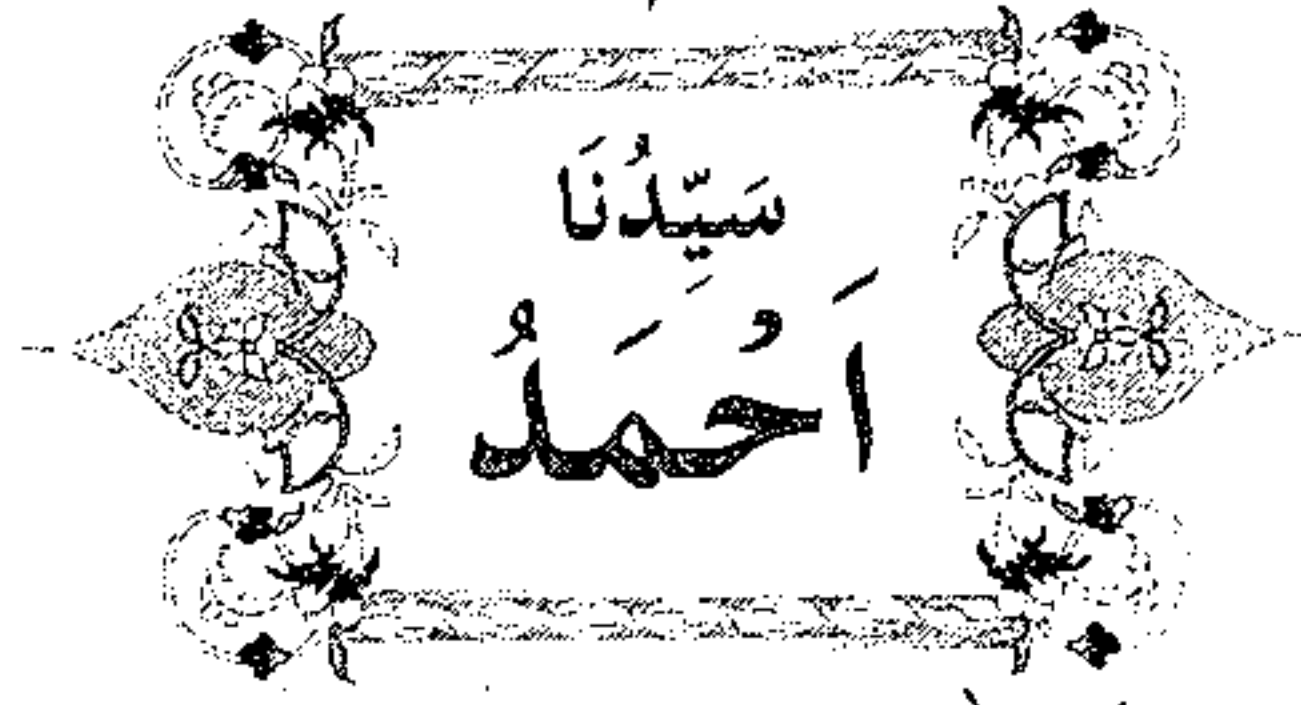 سَيِّدُنَا
اَحُمَدُ